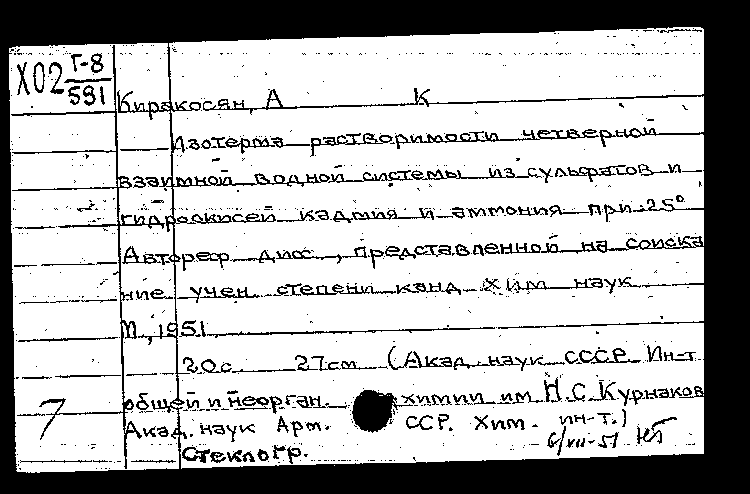 Х02 Г-8
591
Киракосян, А К
Изотерма растворимости четверной
взаимной водной системы из сульфатов и
гидроокисей кадмия и аммония при 25°
Автореф дисс, представленной на соиска
ние учен степени канд хим наук
1951
20с. 27см (Акад. наук СССР Ин-т
7 общей и неорган. химии им Н.С. Курнаков
Акад. наук Арм. ССР. Хим. ин-т.)
Стеклогр. 6/VII-51